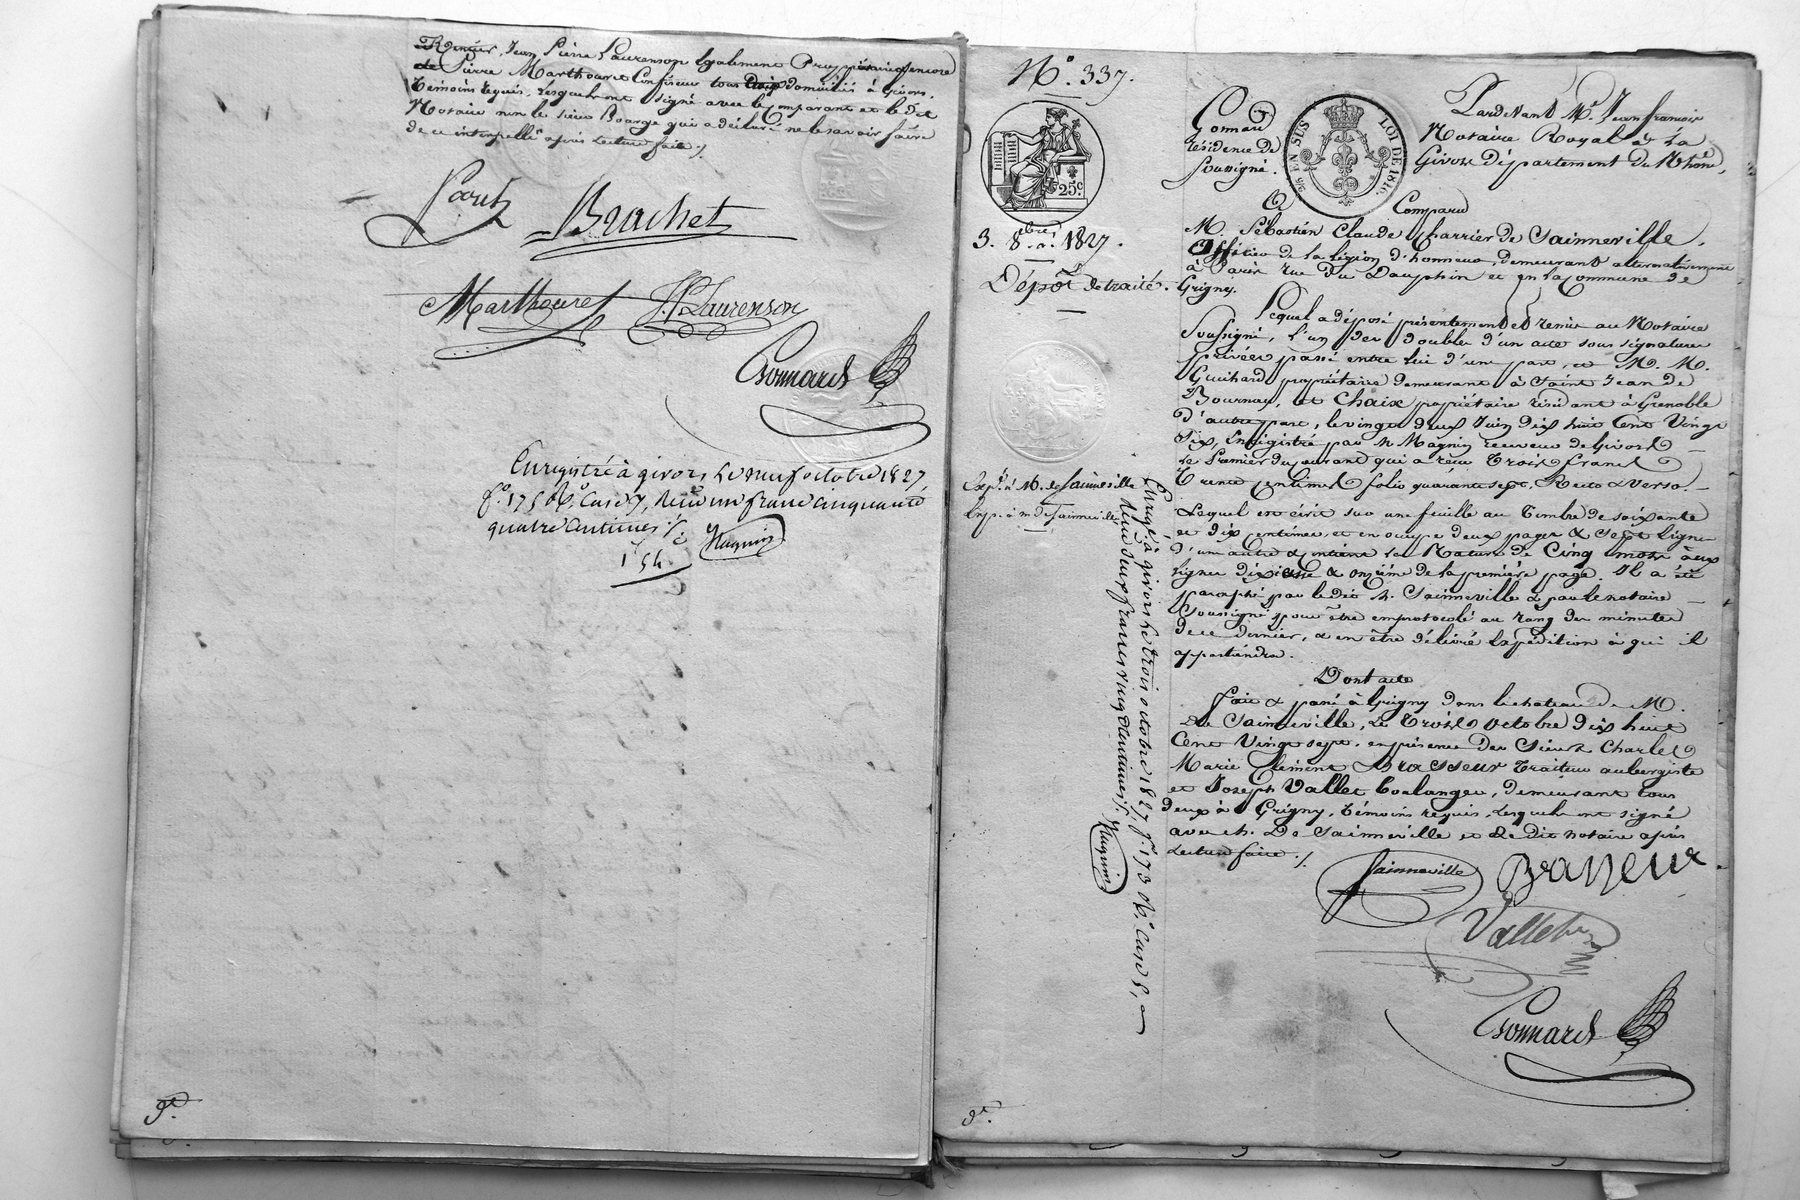 Rentier, Jean Pierre Laurenson également Propriétaire, encore
de Pierre Marthouret Confiseur tous trois domiciliés à Givors,
témoins requis, lesquels ont signé avec le Comparant et le dit
Notaire non le sieur Bourge qui a déclaré ne le savoir faire
de ce interpellé après lecture faite ./.
Brachet
Marthouret J.P. Laurenson
Gonnard
Enregistré à givors, le neuf octobre 1827,
f.° 175 R.° Case 7, Reçu un franc cinquante
quatre centimes ./.
Magnin
1 54
N.° 337.
25c
3. 8.bre 1827.
Dépôt de traité.
Exp.n à M. de Sainneville
Exp. à m. de Sainneville
Enrg.é à givors le trois octobre 1827, f.° 173 R.° Case 8, a
Reçu deux francs vingt centimes ./. Magnin
Pardevant M.e Jean francois
Gonnard Notaire Royal à la
résidence de Givors département du Rhône,
soussigné.
EN SUS LOI DE 1816
A Comparu
M. Sébastien Claude Charrier de Sainneville,
Officier de la légion d'honneur, demeurant alternativement
à Paris rue du Dauphin et en la commune de
Grigny.
Lequel a déposé présentement et remis au Notaire
Soussigné, l'un des doubles d'un acte sous signatures
privées passé entre lui d'une part, et M. M.
Guichard propriétaire demeurant à Saint Jean de
Bournay, et Chaix propriétaire résidant à Grenoble
d'autre part, le vingt deux Juin dix huit Cent Vingt
Six, Enrégistré par M Magnin receveur de Givors
le Premier du courant qui a reçu trois francs
trente centimes folio quarante sept, Recto & Verso.
Lequel est écrit sur une feuille au timbre de soixante
et dix centimes, et en occupe deux pages & sept lignes
d'un autre & contient la Rature de Cinq mots aux
lignes dixième & onzième de la première page. Il a été
paraphé par le dit M. Sainneville & par le notaire
Soussigné pour être emprotocolé au rang des minutes
de ce dernier, & en être délivré Expédition à qui il
appartiendra.
Dont acte
fait & passé à Grigny dans le château de M.
de Sainneville, Le trois octobre dix huit
Cent Vingt sept. en présence des Sieurs Charles
Marie Clément Brasseur traiteur aubergiste
et Joseph Vallet boulanger, demeurant tous
deux à Grigny, témoins requis, lesquels ont signé
avec M. De Sainneville et le dit notaire après
lecture faite ./.
Sainneville Brasseur
Vallet
Gonnard